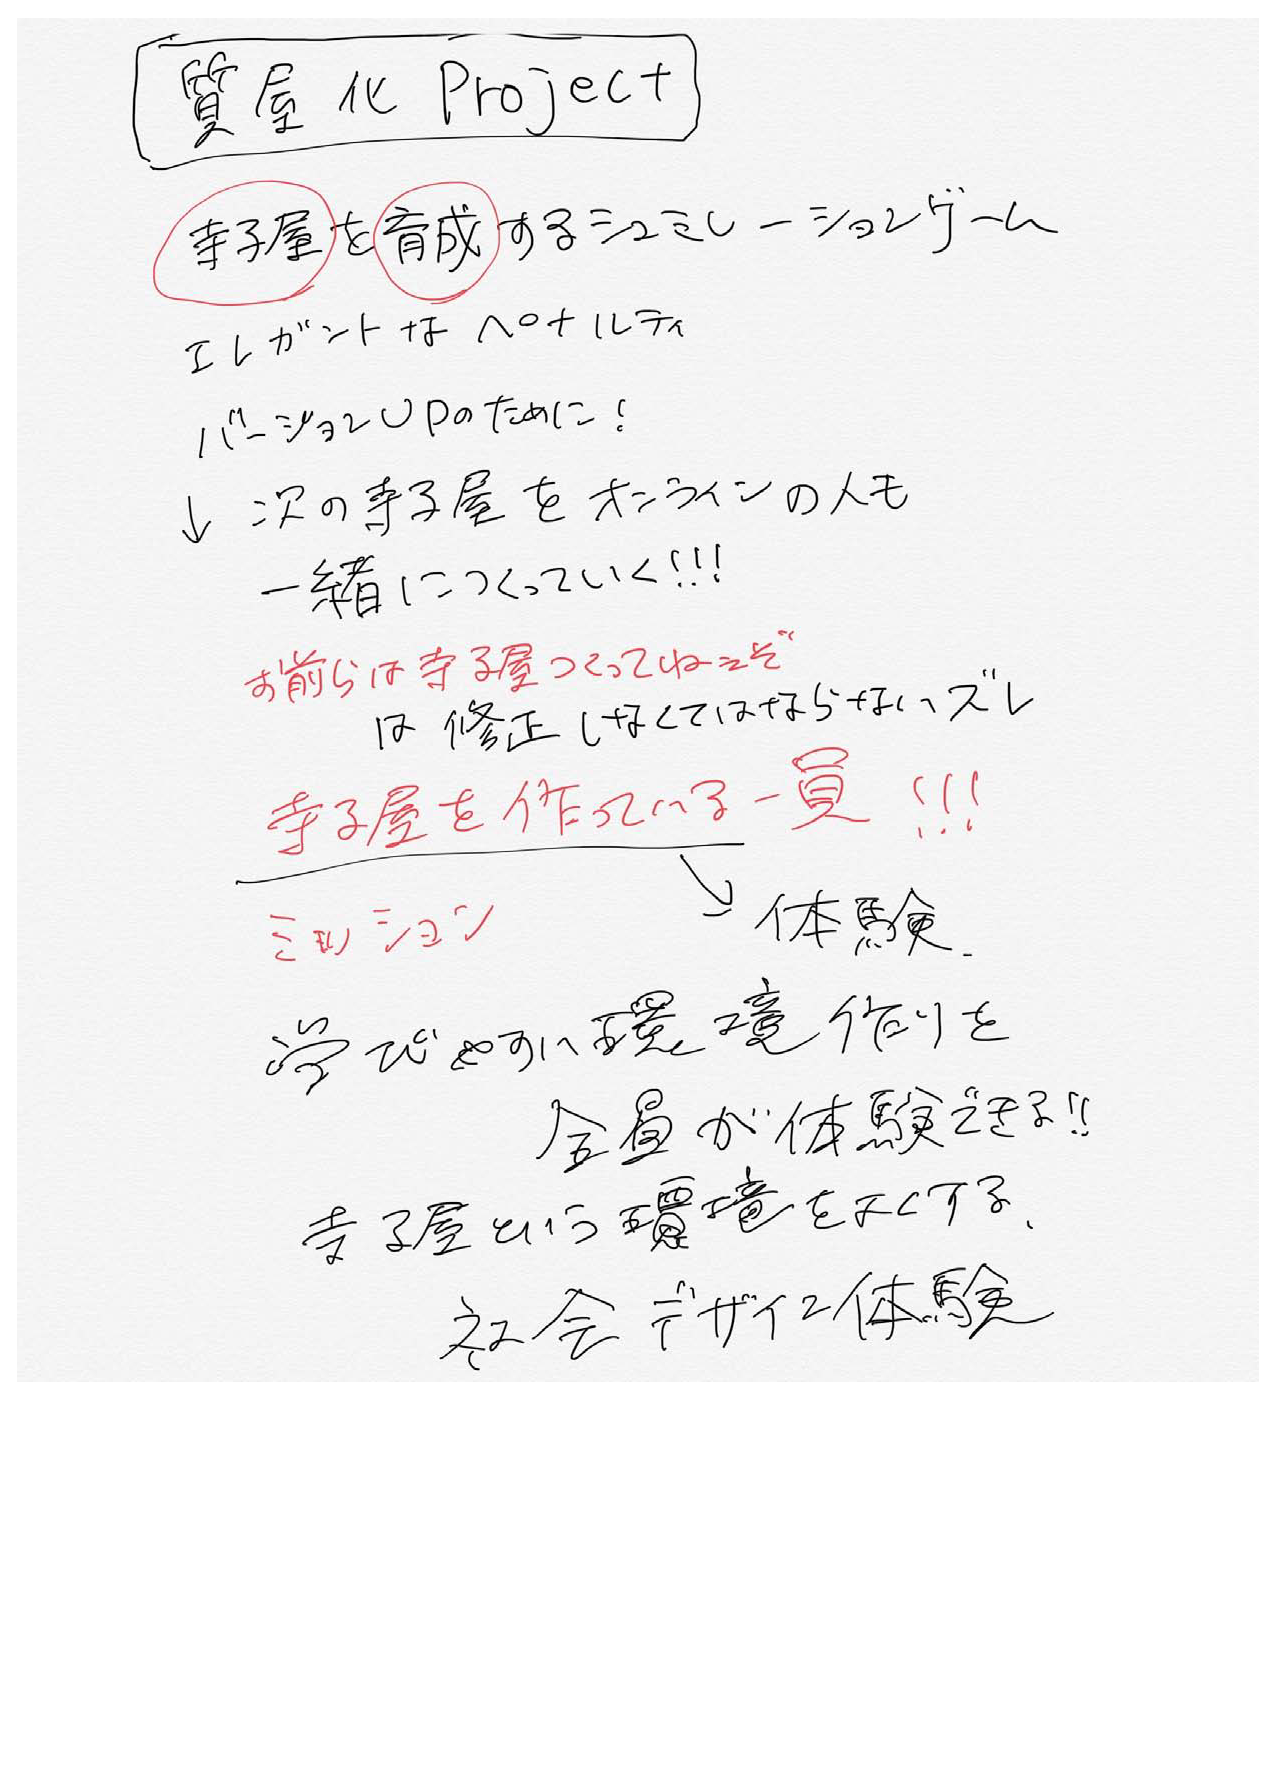 質屋化 Project
寺子屋を育成するシュミレーションゲーム
エレガントなペナルティ
バージョンUPのために!
↓ 次の寺子屋をオンラインの人も
一緒につくっていく!!!
お前らは寺子屋つくってねえぞ
は修正しなくてはならないズレ
寺子屋を作っている一員!!!
ミッション
体験.
学びやすい環境作りを
全員が体験できる!!
寺子屋という環境をよくする.
社会デザイン体験